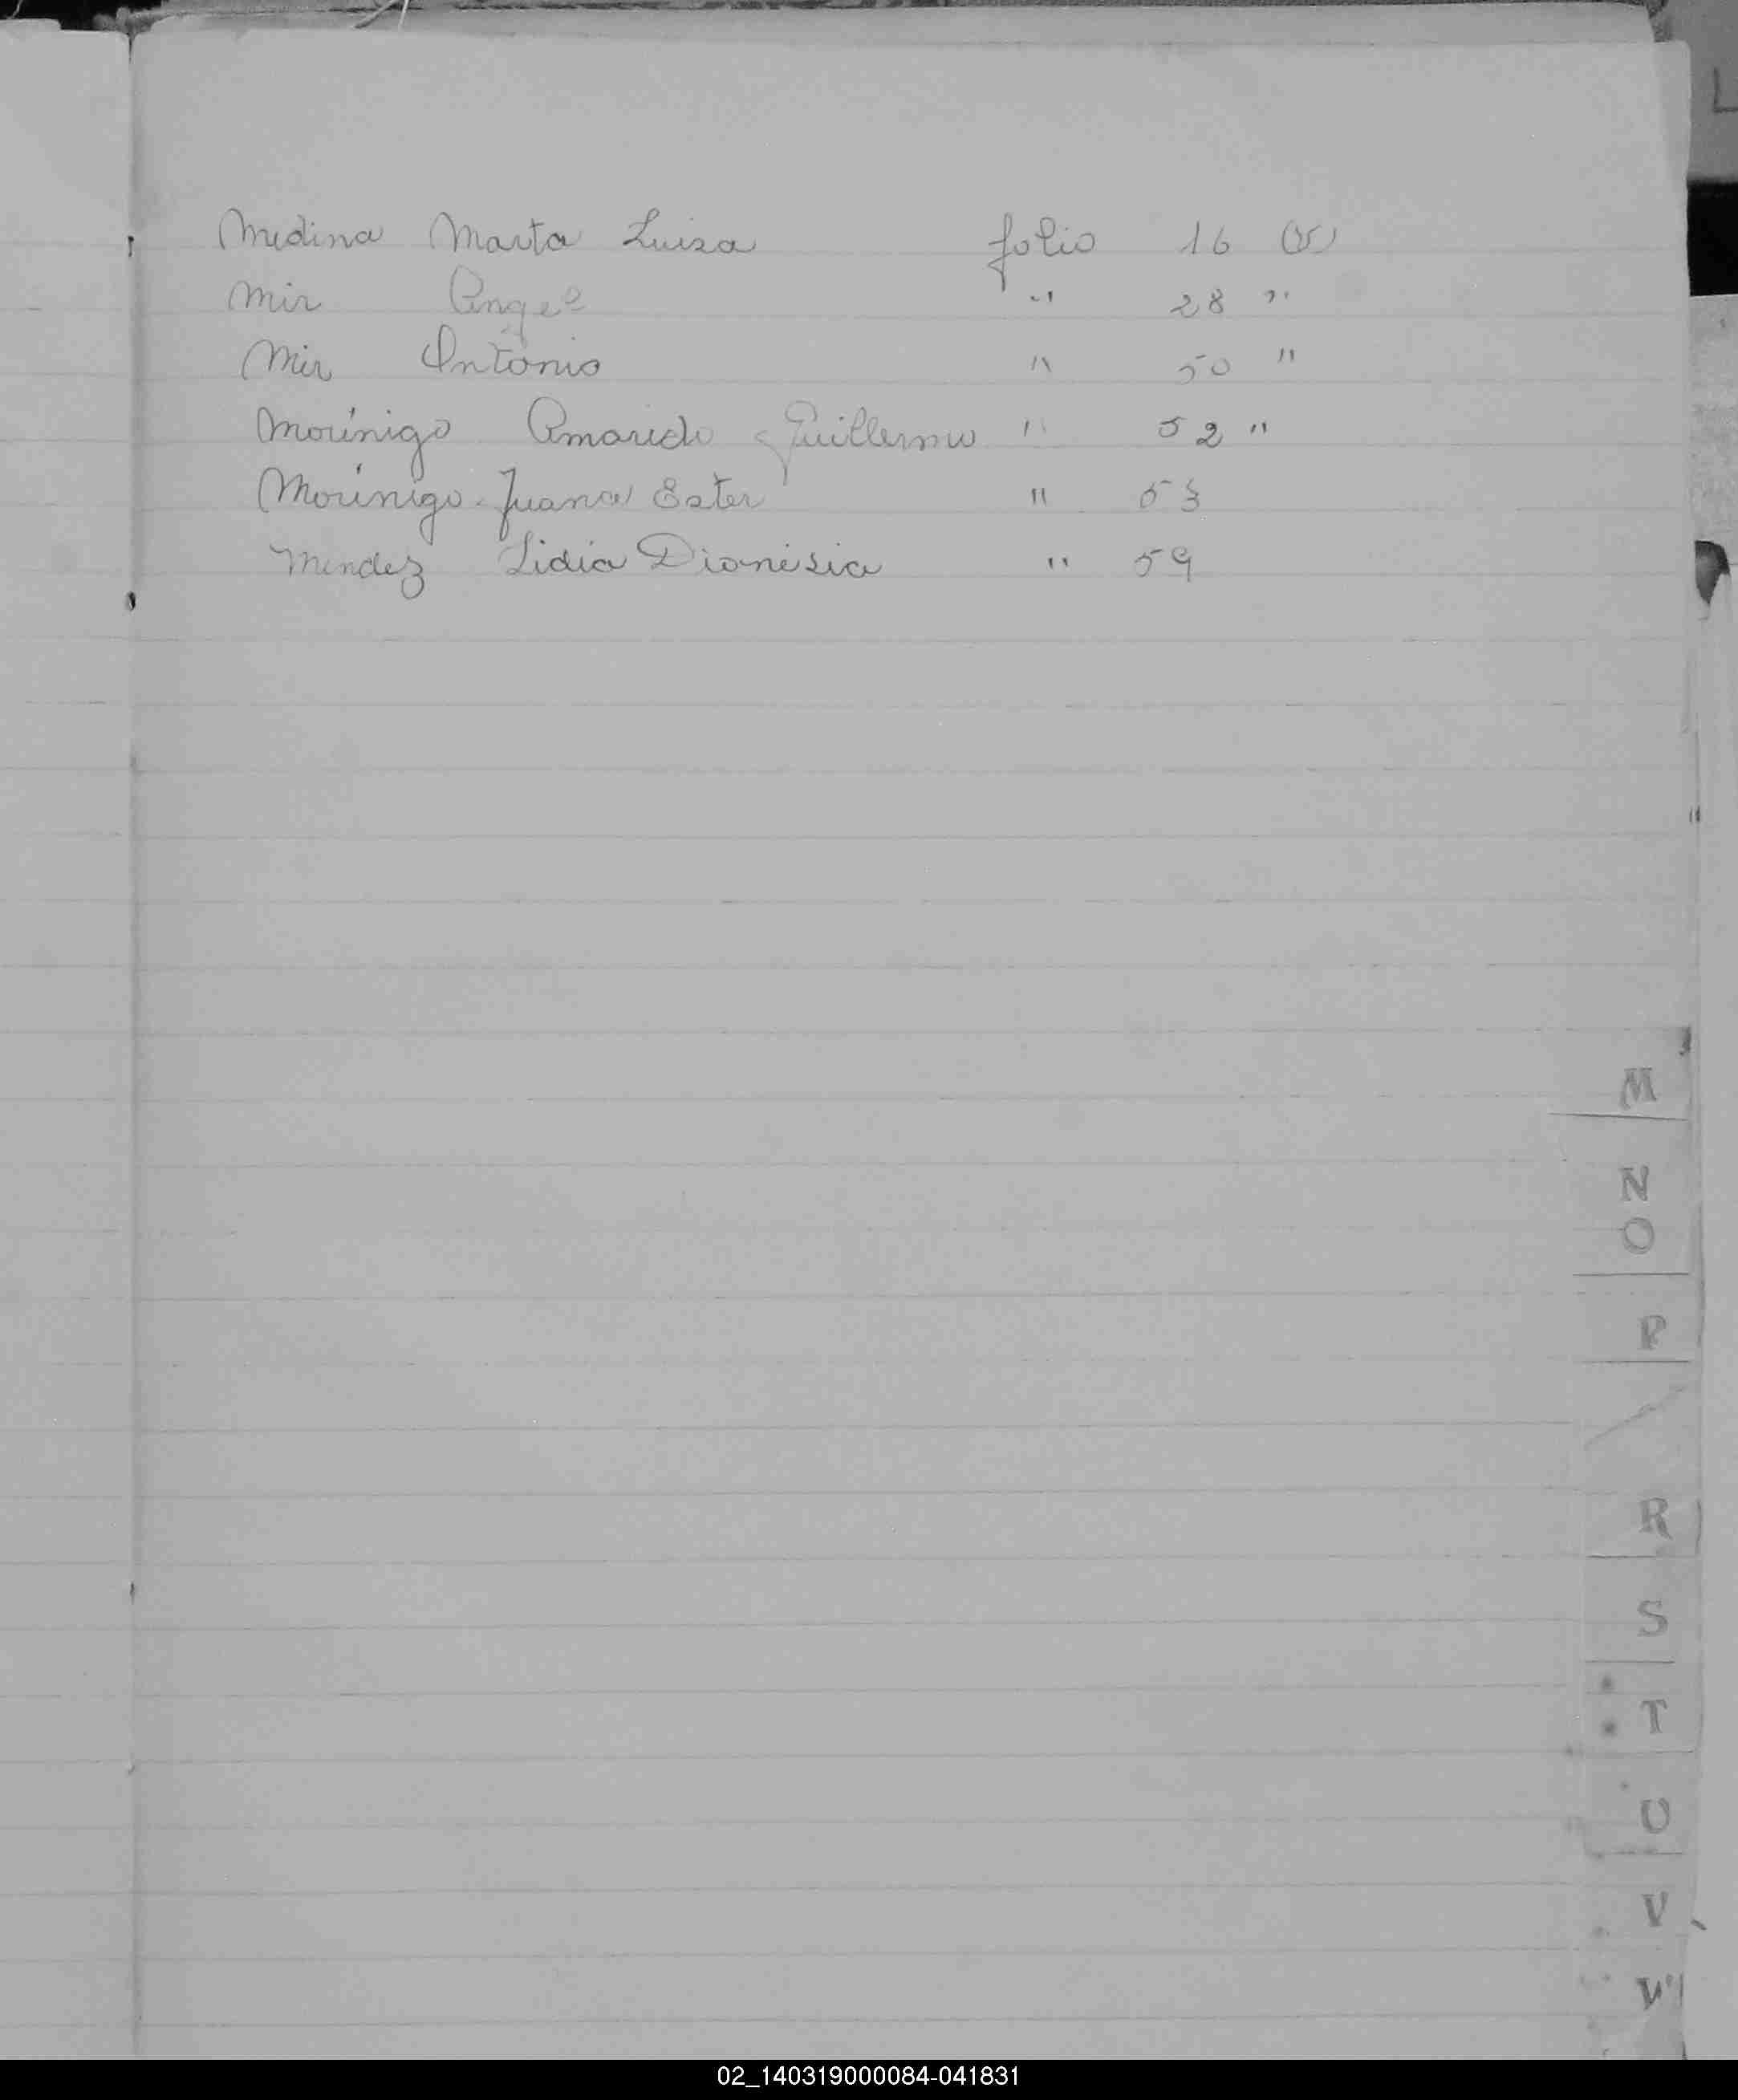 Medina Marta Luisa folio 16 (v)
Mir Angel " 28 "
Mir Antonio " 50 "
Morínigo Guillermo " 52 "
Morínigo Juana Ester " 53
Mendez Lidia Dionisia " 59
L
M
N
O
P
R
S
T
U
V
W
02_140319000084-041831